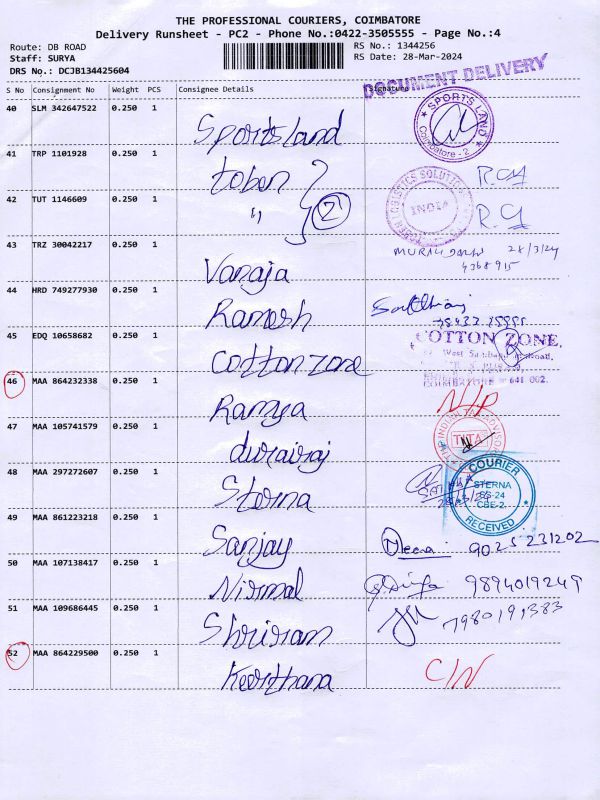 THE PROFESSIONAL COURIERS, COIMBATORE
Delivery Runsheet - PC2 - Phone No.:0422-3505555 - Page No.:4
Route: DB ROAD
Staff: SURYA
DRS No.: DCJB134425604
RS No.: 1344256
RS Date: 28-Mar-2024
DOCUMENT DELIVERY
S No Consignment No Weight PCS Consignee Details Signature
40 SLM 342647522 0.250 1 Sportsland SPORTS LAND Coimbatore - 2
41 TRP 1101928 0.250 1 toben
42 TUT 1146609 0.250 1 " 2 INDIA
43 TRZ 30042217 0.250 1 Vanaja 28/3/24
44 HRD 749277930 0.250 1 Ramesh
45 EDQ 10658682 0.250 1 Cotton zone COTTON ZONE,
46 MAA 864232338 0.250 1 Ramya N/P
47 MAA 105741579 0.250 1 durairaj
48 MAA 297272607 0.250 1 Sterna COURIER STERNA CBE-2 RECEIVED
49 MAA 861223218 0.250 1 Sanjay Meena 9025231202
50 MAA 107138417 0.250 1 Nirmal 9894019249
51 MAA 109686445 0.250 1 Shriram 7980191383
52 MAA 864229500 0.250 1 Keerthana C/N